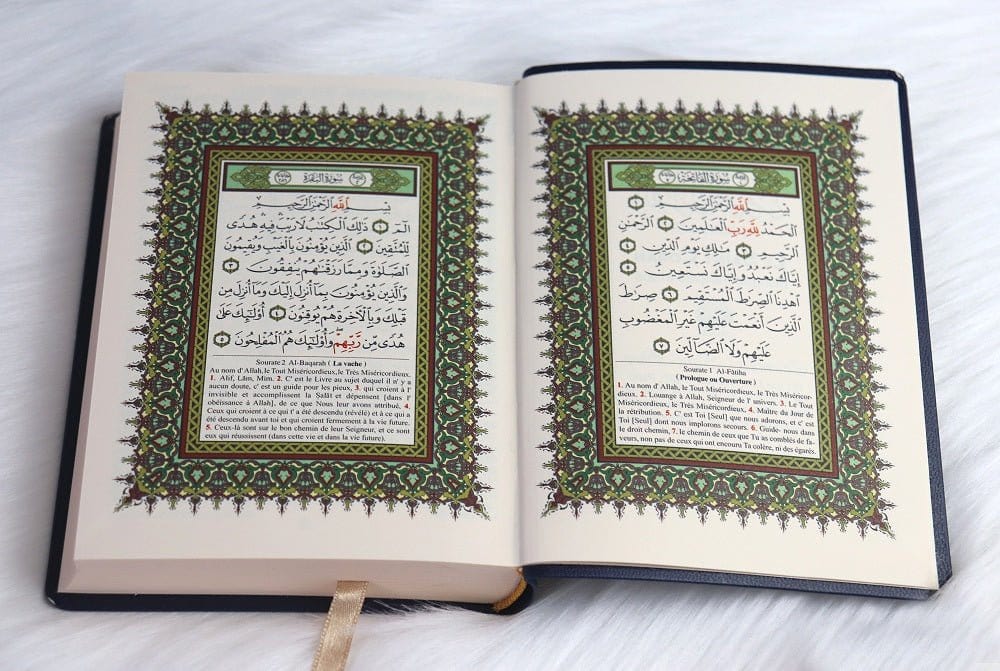 سُورَةُ الفَاتِحَةِ
بِسْمِ ٱللَّهِ ٱلرَّحْمَٰنِ ٱلرَّحِيمِ ١
ٱلْحَمْدُ لِلَّهِ رَبِّ ٱلْعَٰلَمِينَ ٢ ٱلرَّحْمَٰنِ
ٱلرَّحِيمِ ٣ مَٰلِكِ يَوْمِ ٱلدِّينِ ٤
إِيَّاكَ نَعْبُدُ وَإِيَّاكَ نَسْتَعِينُ ٥
ٱهْدِنَا ٱلصِّرَٰطَ ٱلْمُسْتَقِيمَ ٦ صِرَٰطَ
ٱلَّذِينَ أَنْعَمْتَ عَلَيْهِمْ غَيْرِ ٱلْمَغْضُوبِ
عَلَيْهِمْ وَلَا ٱلضَّآلِّينَ ٧
Sourate 1 Al-Fâtiha
( Prologue ou Ouverture )
1. Au nom d' Allah, le Tout Miséricordieux, le Très Miséricor-
dieux. 2. Louange à Allah, Seigneur de l' univers. 3. Le Tout
Miséricordieux, le Très Miséricordieux, 4. Maître du Jour de
la rétribution. 5. C' est Toi [Seul] que nous adorons, et c' est
Toi [Seul] dont nous implorons secours. 6. Guide- nous dans
le droit chemin, 7. le chemin de ceux que Tu as comblés de fa-
veurs, non pas de ceux qui ont encouru Ta colère, ni des égarés.
سُورَةُ البَقَرَةِ
بِسْمِ ٱللَّهِ ٱلرَّحْمَٰنِ ٱلرَّحِيمِ
الٓمٓ ١ ذَٰلِكَ ٱلْكِتَٰبُ لَا رَيْبَ فِيهِ هُدًى
لِّلْمُتَّقِينَ ٢ ٱلَّذِينَ يُؤْمِنُونَ بِٱلْغَيْبِ وَيُقِيمُونَ
ٱلصَّلَوٰةَ وَمِمَّا رَزَقْنَٰهُمْ يُنفِقُونَ ٣
وَٱلَّذِينَ يُؤْمِنُونَ بِمَآ أُنزِلَ إِلَيْكَ وَمَآ أُنزِلَ مِن
قَبْلِكَ وَبِٱلْءَاخِرَةِ هُمْ يُوقِنُونَ ٤ أُو۟لَٰٓئِكَ عَلَىٰ
هُدًى مِّن رَّبِّهِمْ وَأُو۟لَٰٓئِكَ هُمُ ٱلْمُفْلِحُونَ ٥
Sourate 2 Al-Baqarah ( La vache )
Au nom d' Allah, le Tout Miséricordieux, le Très Miséricordieux.
1. Alif, Lâm, Mim. 2. C' est le Livre au sujet duquel il n' y a
aucun doute, c' est un guide pour les pieux, 3. qui croient à l'
invisible et accomplissent la Salât et dépensent [dans l'
obéissance à Allah], de ce que Nous leur avons attribué, 4.
Ceux qui croient à ce qui t' a été descendu (révélé) et à ce qui a
été descendu avant toi et qui croient fermement à la vie future.
5. Ceux-là sont sur le bon chemin de leur Seigneur, et ce sont
eux qui réussissent (dans cette vie et dans la vie future).